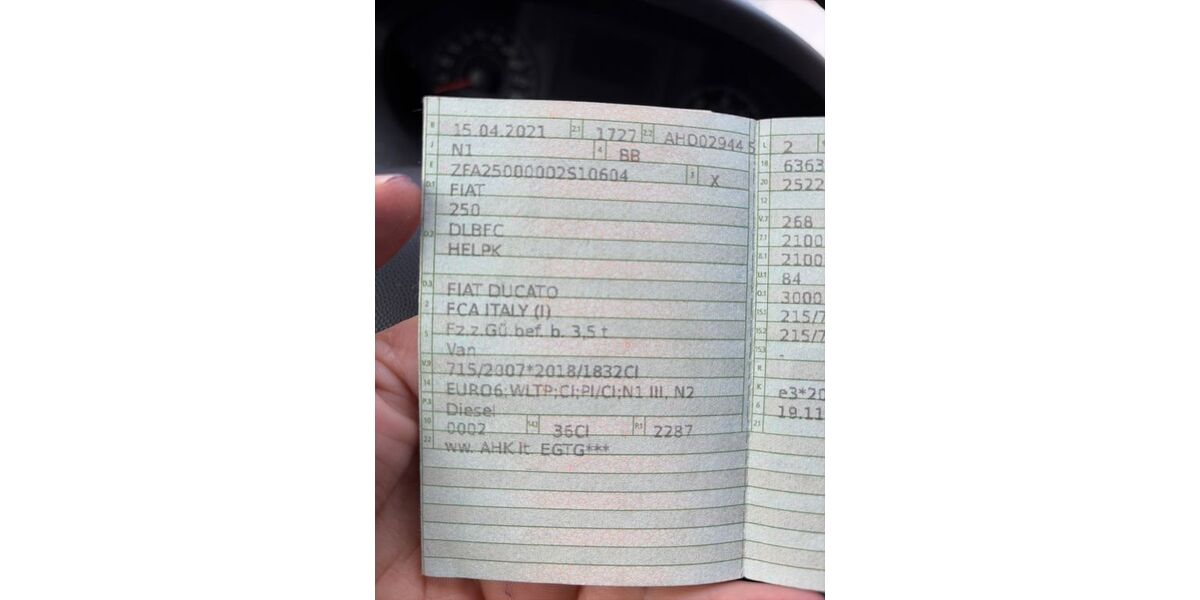 B 15.04.2021 2.1 1727 2.2 AHD02944 5
J N1 4 BB
E ZFA25000002S10604 3 X
D.1 FIAT
250
D.2 DLBFC
HELPK
D.3 FIAT DUCATO
2 FCA ITALY (I)
5 Fz.z.Gü.bef. b. 3,5 t
Van
V.9 715/2007*2018/1832CI
14 EURO6;WLTP;CI;PI/CI;N1 III, N2
P.3 Diesel
10 0002 14.1 36CI P.1 2287
22 ww. AHK lt. EGTG***
L 2
18 6363
20 2522
12
V.7 268
7.1 2100
8.1 2100
U.1 84
O.1 3000
15.1 215/7
15.2 215/7
15.3 -
R
K e3*20
6 19.11
21